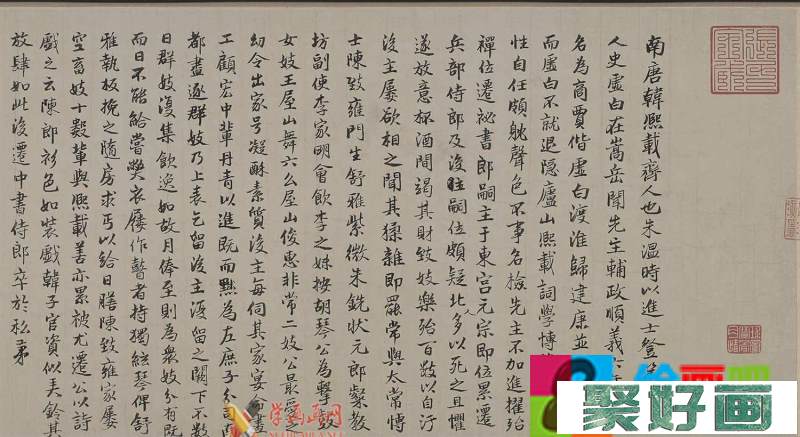 南唐韓熙載齊人也朱温時以進士登
人史虛白在嵩岳聞先主輔政順義六
名為商賈偕虛白渡淮歸建康並
而虛白不就退隱廬山熙載詞學博
性自任頗躭聲色不事名檢先主不加進擢殆
禪位遷祕書郎嗣主于東宮元宗即位累遷
兵部侍郎及後主嗣位頗疑北人多以死之且懼
遂放意杯酒間竭其財致妓樂殆百數以自汙
後主屢欲相之聞其猱雜即罷常與太常博
士陳致雍門生舒雅紫微朱銑狀元郎粲教
坊副使李家明會飲李之妹按胡琴公為擊鼓
女妓王屋山舞六么屋山俊惠非常二妓公最愛
幼令出家号凝酥素質後主每伺其家宴命畫
工顧宏中輩丹青以進既而黜為左庶子分司南
都盡逐群妓乃上表乞留後主復留之闕下不數
日群妓復集飲逸如故月俸至則為衆妓分有既
而日不能給嘗弊衣屨作瞽者持獨絃琴俾舒
雅執板挽之隨房求丐以給日膳陳致雍家屢
空畜妓十數輩與熙載善亦累被尤遷公以詩
戲之云陳郎衫色如裝戲韓子官資似美鈐其
放肆如此後遷中書侍郎卒於私第
学画画网
绘画吧
聚好画